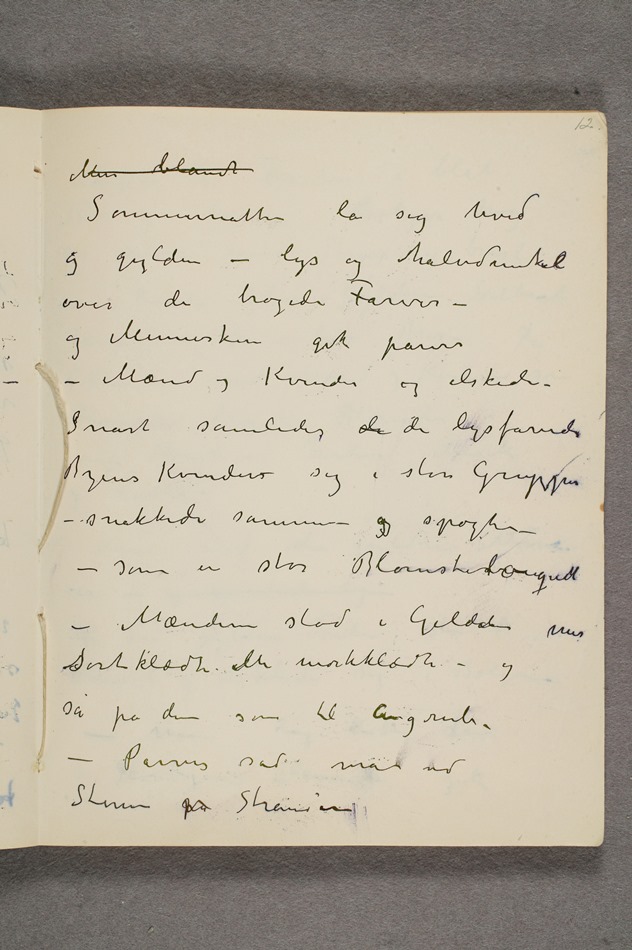 12
Men blandt
Sommernatten la sig hvid
og gylden – lys og halvdunkel
over de brogede Farver –
og Menneskene gik parvis
– Mænd og Kvinder og elskede –
Snart samledes de de lysfarvede
Byens Kvinder sig i store Grupper
– snakkede sammen – og spøgte –
– som en stor
– Mændene stod i
Sortklædte eller mørkklædte – og
så på dem som til Angreb –
– Parvis sad man ved
Stenene på Stranden